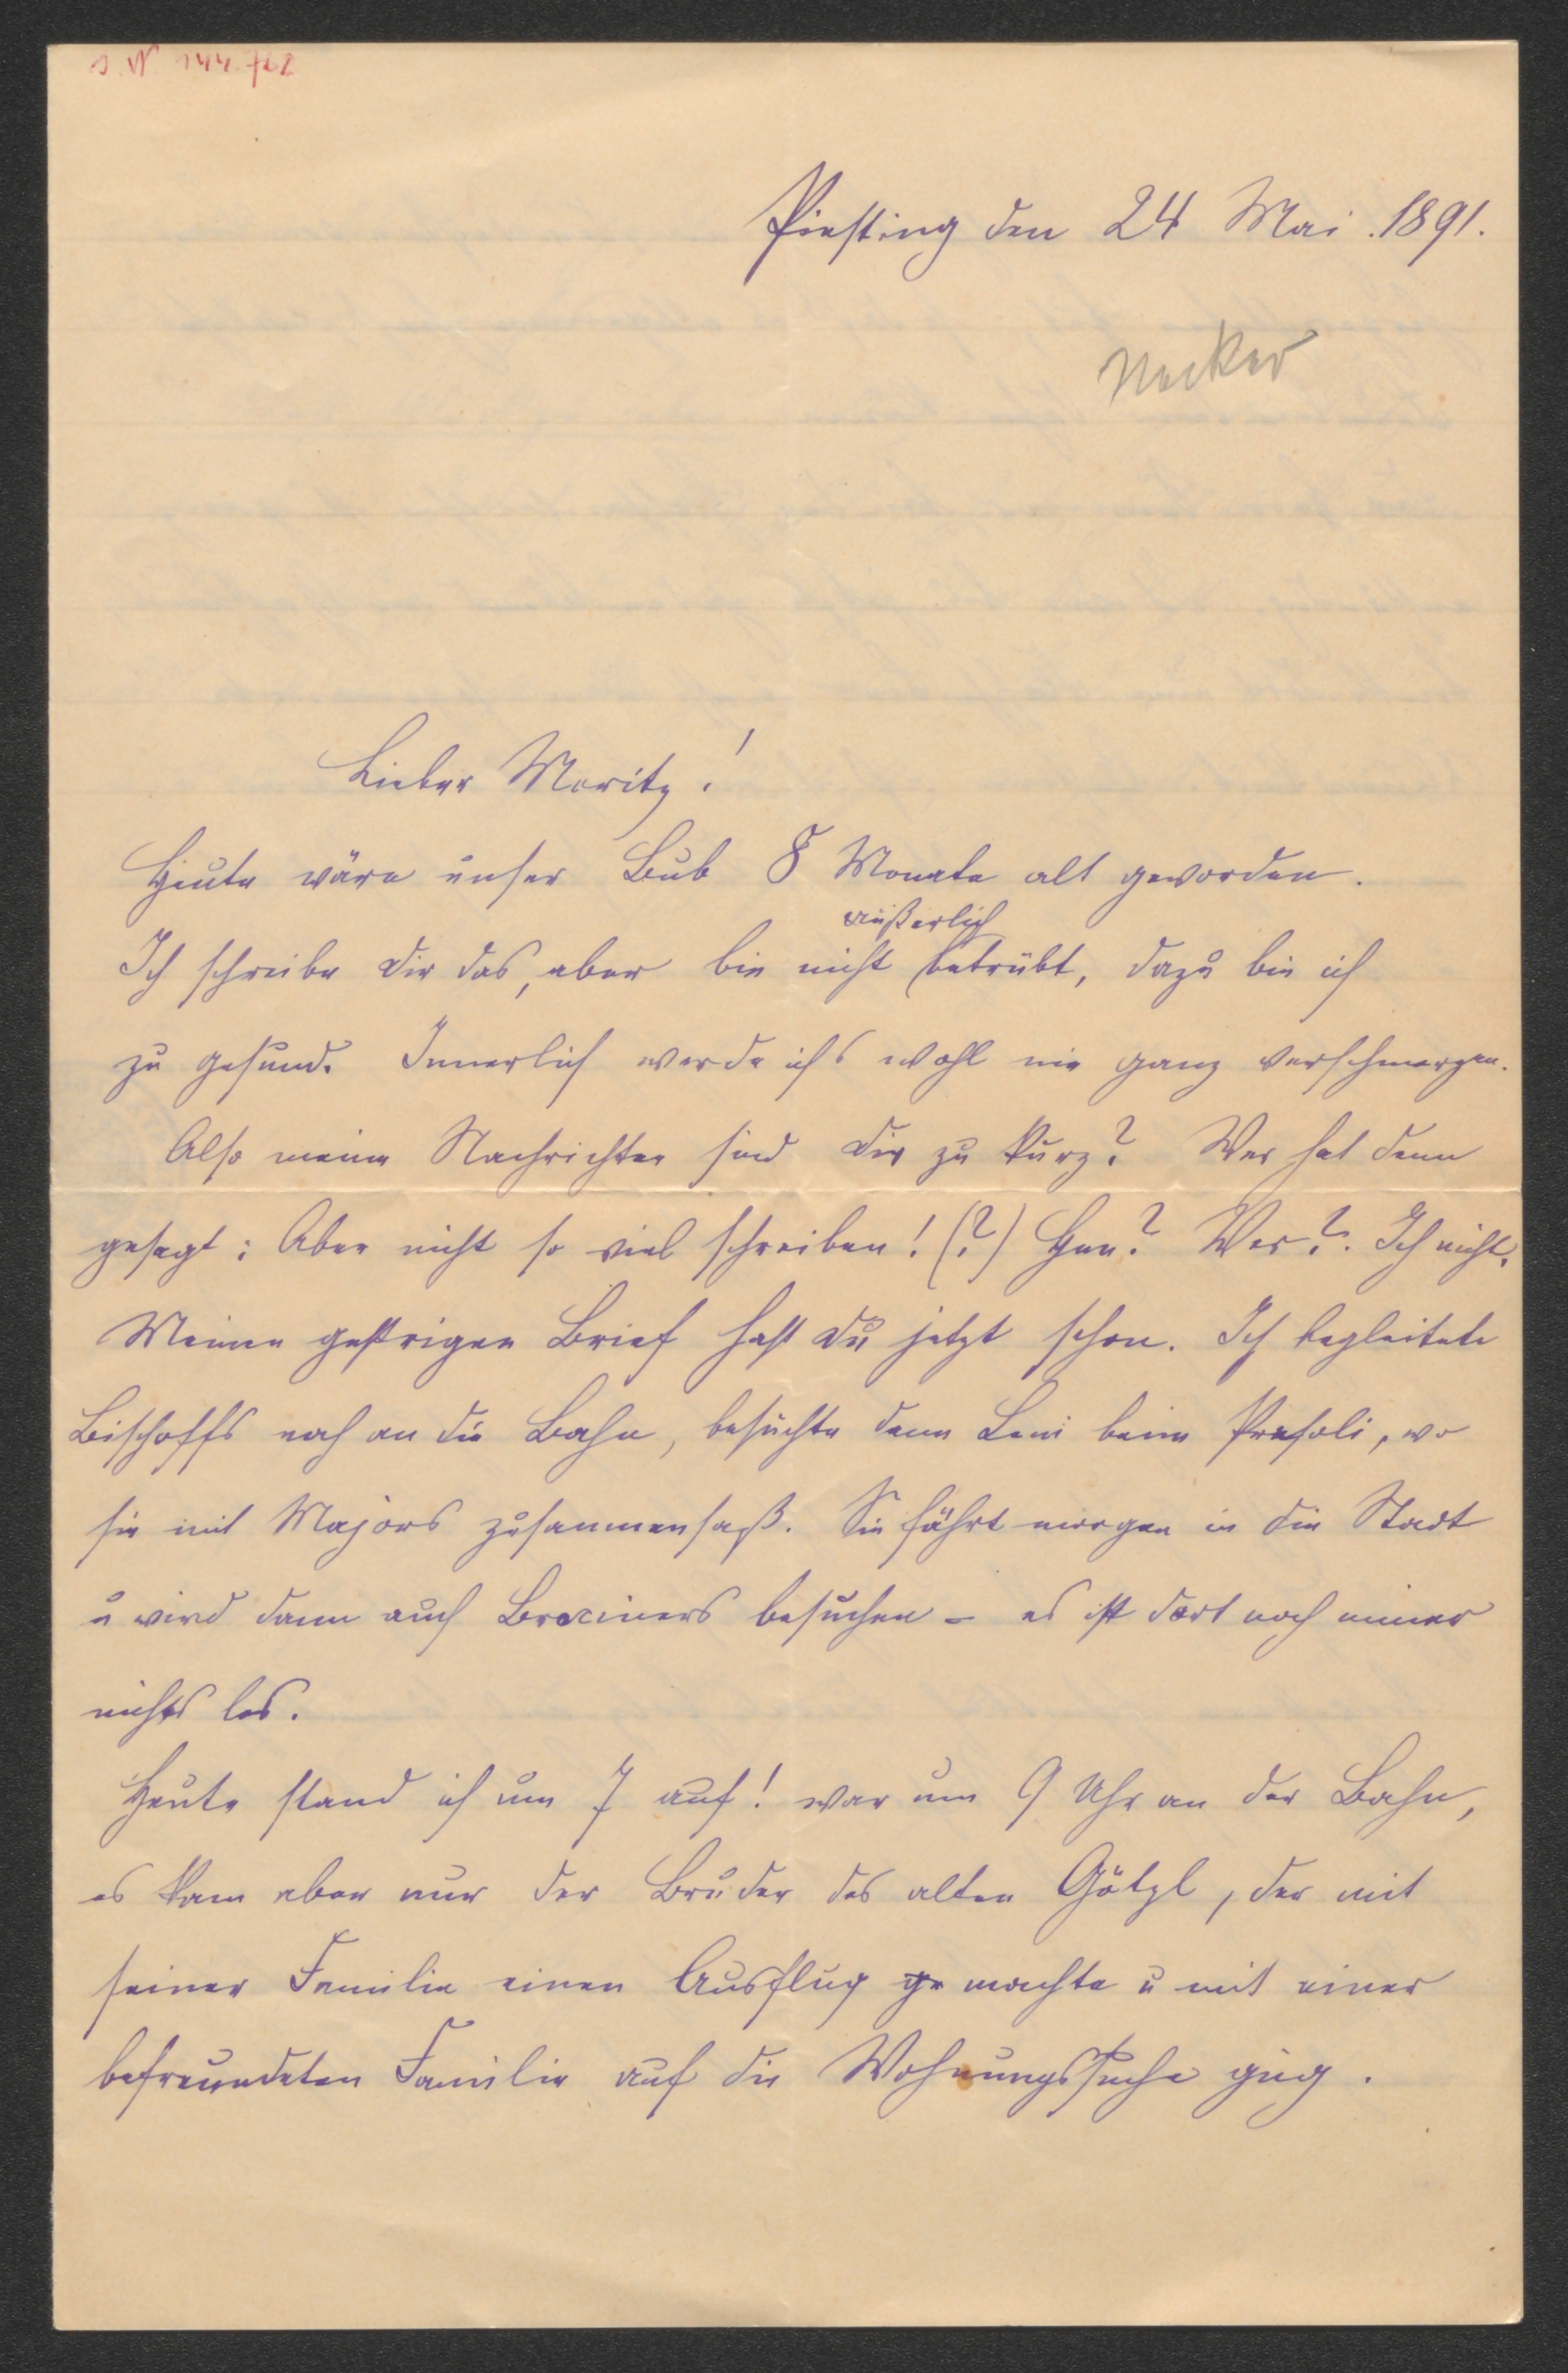 J. N. 144.762
Piesting den 24 Mai .1891.
Necker
Lieber Moritz!
Heute wäre unser Bub 8 Monate alt geworden.
äußerlich
Ich schreibe dir das, aber bin nicht betrübt, dazu bin ich
zu gesund. Innerlich werde ichs wohl nie ganz verschmerzen.
Also meine Nachrichten sind dir zu kurz? Wer hat denn
gesagt: Aber nicht so viel schreiben! (?) Hen? Wer?. Ich nicht.
Meinen gestrigen Brief hast du jetzt schon. Ich begleitete
Bischoffs noch an die Bahn, besuchte dann Leni beim , wo
sie mit Majors zusammensaß. Sie fährt morgen in die Stadt
u wird dann auch Brociners besuchen – es ist dort noch immer
nichts los.
Heute stand ich um 7 auf! war um 9 Uhr an der Bahn,
es kam aber nur der Bruder des alten Götzl, der mit
seiner Familie einen Ausflug ge machte u mit einer
befreundeten Familie auf die Wohnungssuche ging.